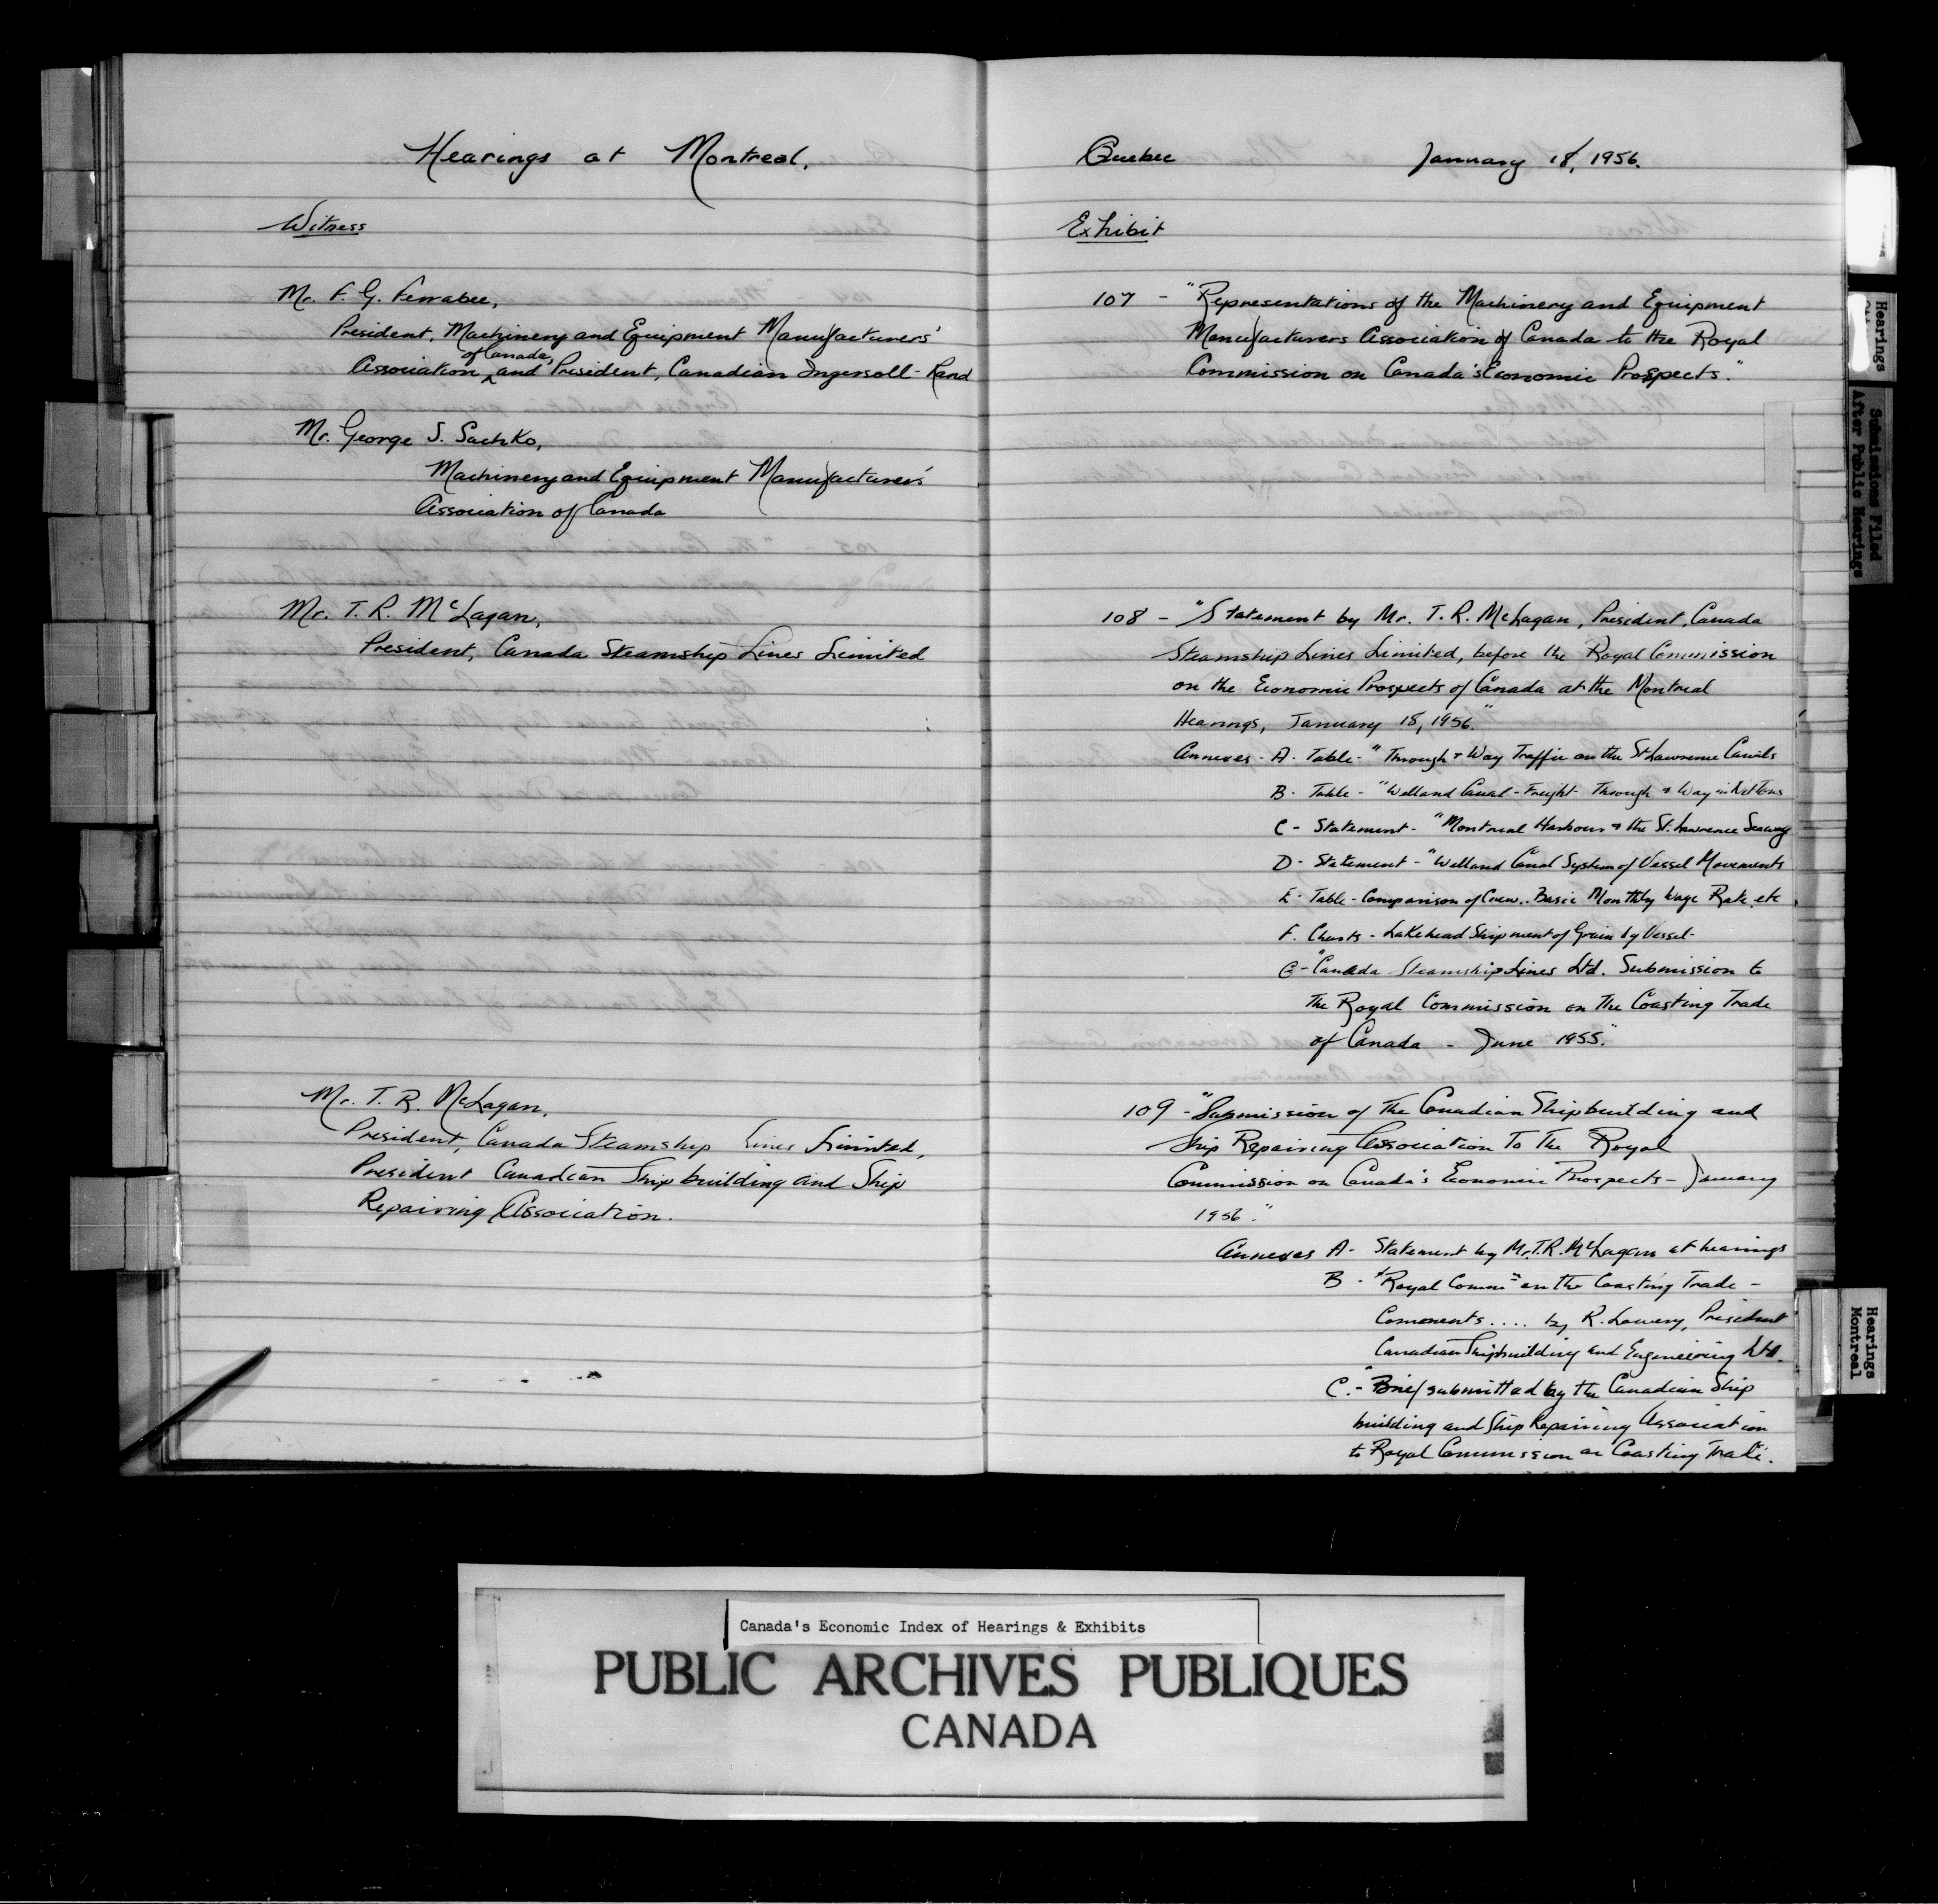 Hearings at Montreal,
Witness
Mr. F. G. Ferrabee,
President, Machinery and Equipment Manufacturers'
of Canada,
Association and President, Canadian Ingersoll-Rand
Mr. George S. Sachko,
Machinery and Equipment Manufacturers'
Association of Canada
Mr. T. R. McLagan,
President, Canada Steamship Lines Limited
Mr. T. R. McLagan,
President, Canada Steamship Lines Limited,
President Canadian Shipbuilding and Ship
Repairing Association.
Quebec January 18, 1956.
Exhibit
107 - "Representations of the Machinery and Equipment
Manufacturers Association of Canada to the Royal
Commission on Canada's Economic Prospects."
108 - "Statement by Mr. T. R. McLagan, President, Canada
Steamship Lines Limited, before the Royal Commission
on the Economic Prospects of Canada at the Montreal
Hearings, January 18, 1956."
Annexes - A. Table - "Through & Way Traffic on the St Lawrence Canals
B - Table - "Welland Canal - Freight - Through & Way in Net Tons
C - Statement - "Montreal Harbour & the St. Lawrence Seaway
D - Statement - "Welland Canal System of Vessel Movements
E - Table - Comparison of Crew.. Basic Monthly Wage Rate etc
F. Charts - Lakehead Shipment of Grain by Vessel -
G - "Canada Steamship Lines Ltd. Submission to
the Royal Commission on the Coasting Trade
of Canada - June 1955."
109 - "Submission of the Canadian Shipbuilding and
Ship Repairing Association To The Royal
Commission on Canada's Economic Prospects - January
1956."
Annexes A - Statement by Mr. T.R. McLagan at hearings
B - "Royal Commn on the Coasting Trade -
Comments .... by R. Lowery, President
Canadian Shipbuilding and Engineering Ltd.
C. - "Brief submitted by the Canadian Ship
building and Ship Repairing Association
to Royal Commission on Coasting Trade.
Hearings
Submissions Filed
After Public Hearings
Hearings
Montreal
Canada's Economic Index of Hearings & Exhibits
PUBLIC ARCHIVES PUBLIQUES
CANADA